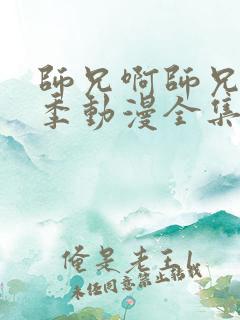 師兄啊師兄
季動漫全集
俺是老王l
未任同意禁止轉載